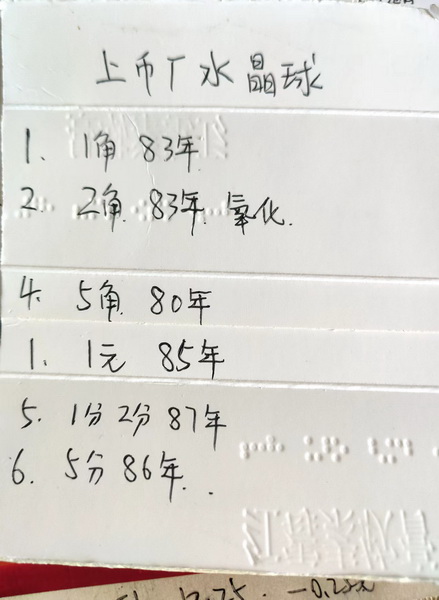 上币厂水晶球
1. 1角 83年
2. 2角 83年 氧化.
4. 5角 80年
1. 1元 85年
5. 1分 2分 87年
6. 5分 86年.